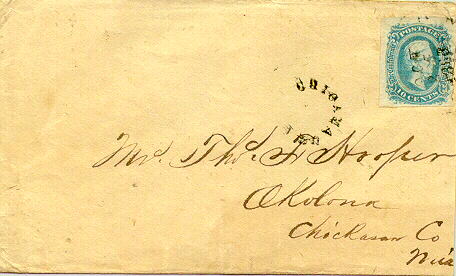 POSTAGE
10 CENTS
Mr. Tho. H Hooper
Okolona
Chickasaw Co
Miss